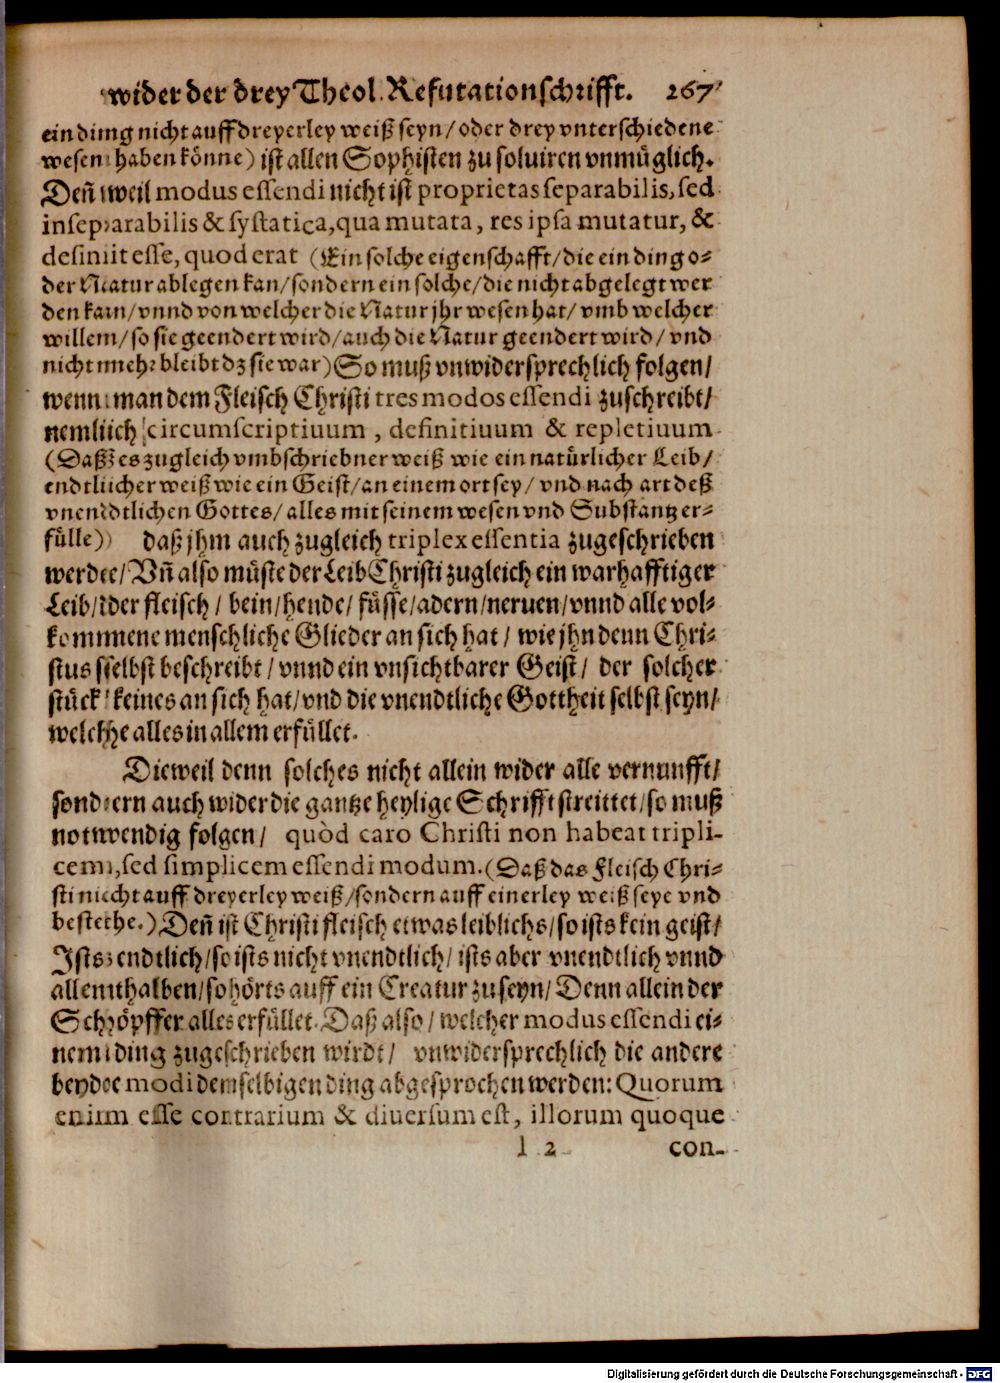 wider der drey Theol. Refutationschrifft. 267
ein ding nicht auff dreyerley weiß seyn/ oder drey vnterschiedene
wesen haben könne) ist allen Sophisten zu soluiren vnmüglich.
Deñ weil modus essendi nicht ist proprietas separabilis, sed
inseparabilis & systatica, qua mutata, res ipsa mutatur, &
desinit esse, quod erat (Ein solche eigenschafft/ die ein ding o-
der Natur ablegen kan/ sondern ein solche/ die nicht abgelegt wer
den kan/ vnnd von welcher die Natur jhr wesen hat/ vmb welcher
willen/ so sie geendert wird/ auch die Natur geendert wird/ vnd
nicht mehr bleibt dz sie war) So muß vnwidersprechlich folgen/
wenn man dem Fleisch Christi tres modos essendi zuschreibt/
nemlich circumscriptiuum, definitiuum & repletiuum
(Daß es zugleich vmbschriebner weiß wie ein natürlicher Leib/
endtlicher weiß wie ein Geist/ an einem ort sey/ vnd nach art deß
vnendtlichen Gottes/ alles mit seinem wesen vnd Substantz er-
fülle) daß jhm auch zugleich triplex essentia zugeschrieben
werde/ Vñ also müste der Leib Christi zugleich ein warhafftiger
Leib/ der fleisch/ bein/ hende/ füsse/ adern/ neruen/ vnnd alle vol-
kommene menschliche Glieder an sich hat/ wie jhn denn Chri-
stus selbst beschreibt/ vnnd ein vnsichtbarer Geist/ der solcher
stück keines an sich hat/ vnd die vnendtliche Gottheit selbst seyn/
welche alles in allem erfüllet.
Dieweil denn solches nicht allein wider alle vernunfft/
sondern auch wider die gantze heylige Schrifft streittet/ so muß
notwendig folgen/ quòd caro Christi non habeat tripli-
cem, sed simplicem essendi modum. (Daß das Fleisch Chri-
sti nicht auff dreyerley weiß/ sondern auff einerley weiß seye vnd
bestehe.) Deñ ist Christi fleisch etwas leiblichs/ so ists kein geist/
Ists endtlich/ so ists nicht vnendtlich/ ists aber vnendtlich vnnd
allenthalben/ so hörts auff ein Creatur zu seyn/ Denn allein der
Schöpffer alles erfüllet. Daß also/ welcher modus essendi ei-
nem ding zugeschrieben wirdt/ vnwidersprechlich die andere
beyde modi demselbigen ding abgesprochen werden: Quorum
enim esse contrarium & diuersum est, illorum quoque
l 2 con-
Digitalisierung gefördert durch die Deutsche Forschungsgemeinschaft - DFG